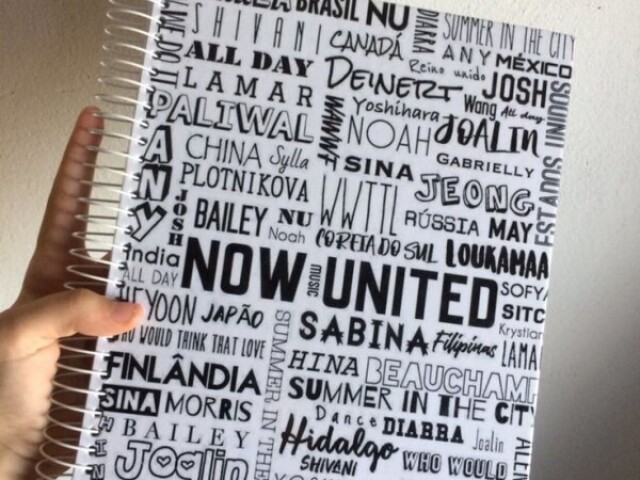 BRASIL NU
DIARRA
SUMMER IN THE CITY
SHIVANI
CANADÁ
ANY MÉXICO
ALL DAY
Reino unido
JOSH
DEINERT
LAMAR
Yoshihara
Wang All day
PALIWAL
WWWF
NOAH
JOALIN
CHINA Sylla
SINA
GABRIELLY
ANY
PLOTNIKOVA
WWTTL
JEONG
JOSH
BAILEY NU
Noah
RÚSSIA MAY
ESTADOS UNIDOS
COREIA DO SUL
LOUKAMAA
India
ALL DAY
NOW UNITED
music
SOFYA
HEYOON JAPÃO
SABINA
Filipinas
SITC
Krystian
WHO WOULD THINK THAT LOVE
SUMMER IN THE
LAMA
FINLÂNDIA
HINA BEAUCHAMP
SUMMER IN THE CITY
SINA MORRIS
Dance DIARRA Joalin
BAILEY
Hidalgo
SHIVANI
WHO WOULD
Joalin